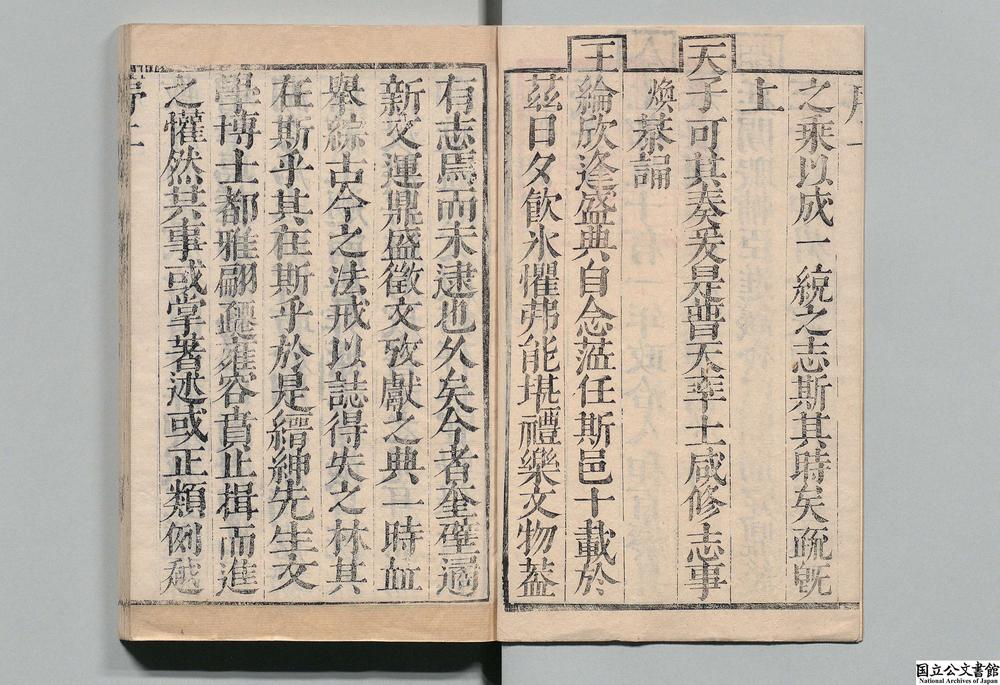 之乘以成一統之志斯其時矣疏既
上
天子可其奏爰是普天率土咸修志事
煥綦誦
王綸欣逢盛典自念涖任斯邑十載於
茲日夕飲氷懼弗能堪禮樂文物蓋
有志焉而未逮也久矣今者奎璧
新文運鼎盛徵文攷獻之典一時
舉綜古今之法戒以誌得失之林其
在斯乎其在斯乎於是縉紳先生文
學博士都雅翩雍容賁止揖而進
之懽然共事或掌著述或正類例
国立公文書館
National Archives of Japan